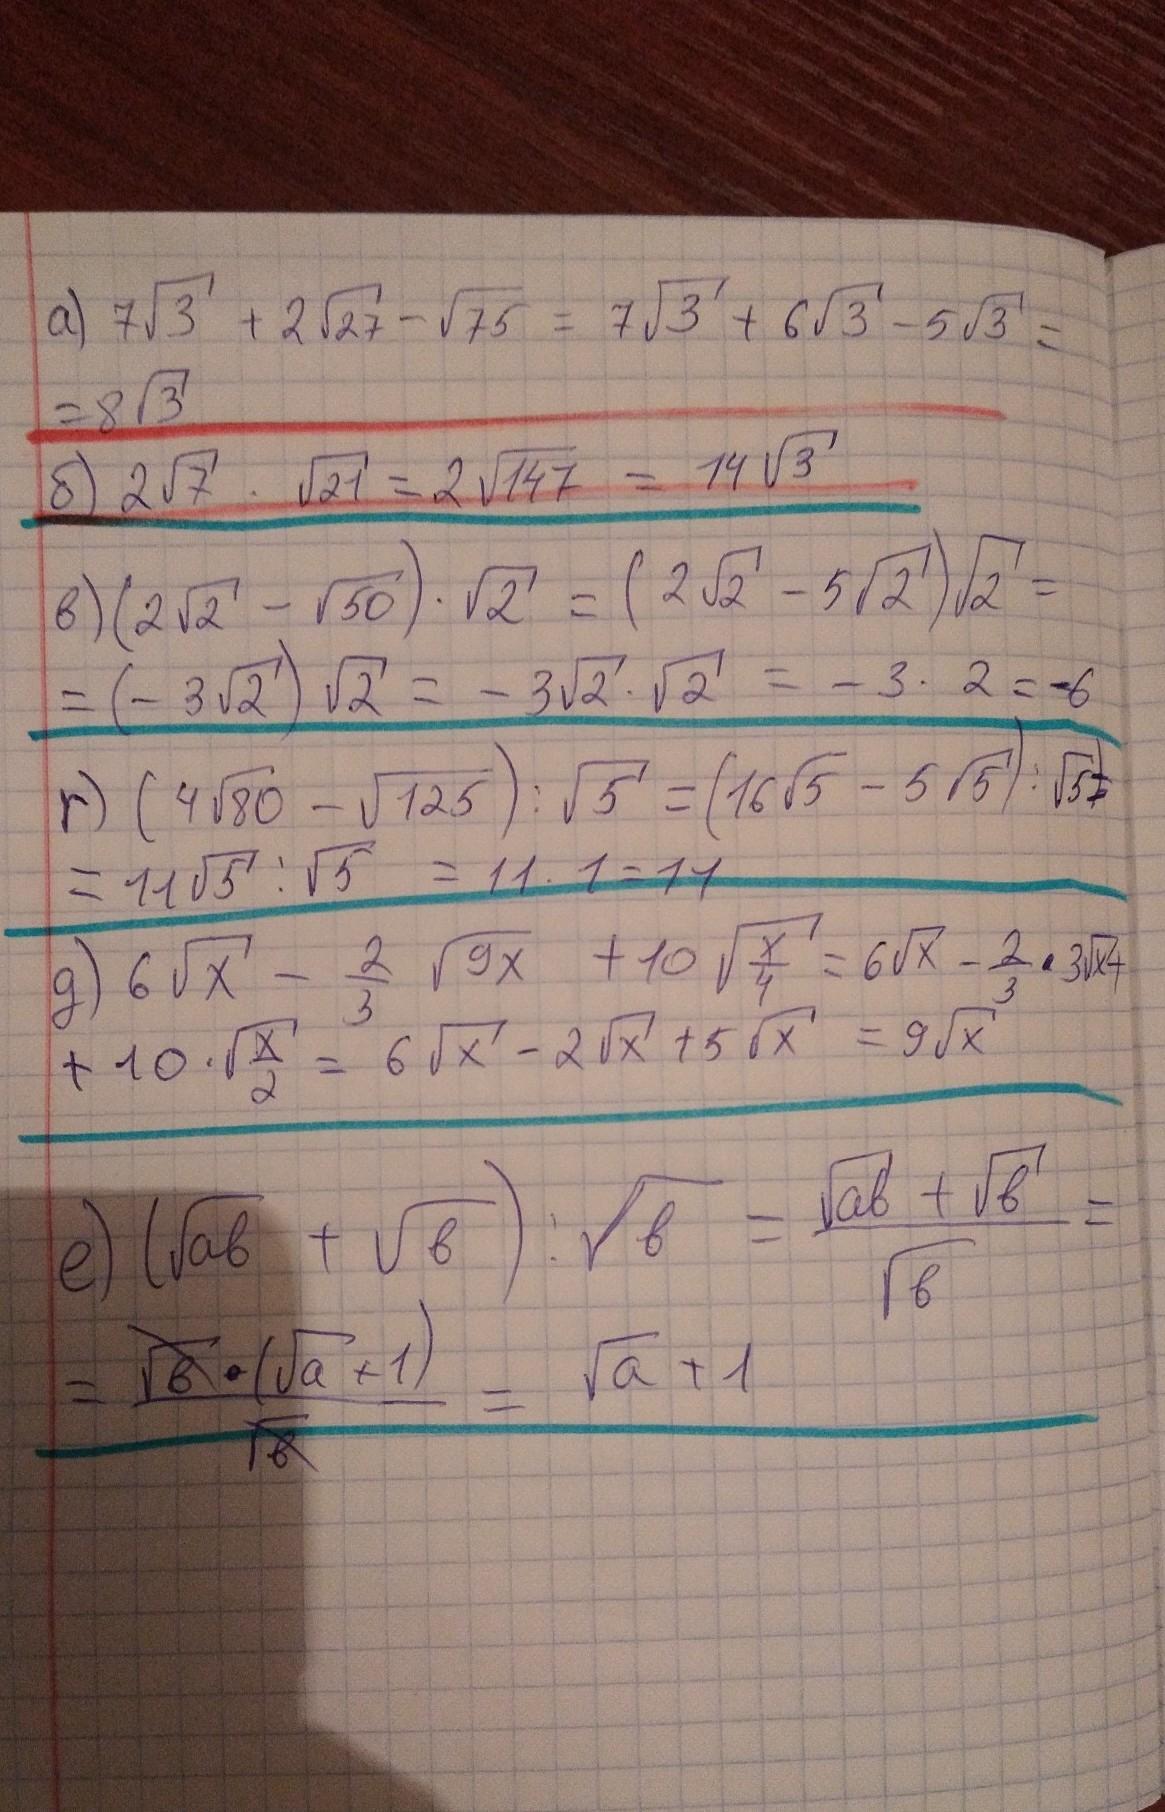 а) 7√3 + 2√27 − √75 = 7√3 + 6√3 − 5√3 =
= 8√3
б) 2√7 · √21 = 2√147 = 14√3
в) (2√2 − √50) · √2 = (2√2 − 5√2)√2 =
= (−3√2)√2 = −3√2 · √2 = −3 · 2 = −6
г) (4√80 − √125) : √5 = (16√5 − 5√5) : √5 =
= 11√5 : √5 = 11 · 1 = 11
д) 6√x − 2/3 √9x + 10√(x/4) = 6√x − 2/3 · 3√x +
+ 10 · √x/2 = 6√x − 2√x + 5√x = 9√x
е) (√ав + √в) : √в = (√ав + √в)/√в =
= √в · (√а + 1)/√в = √а + 1